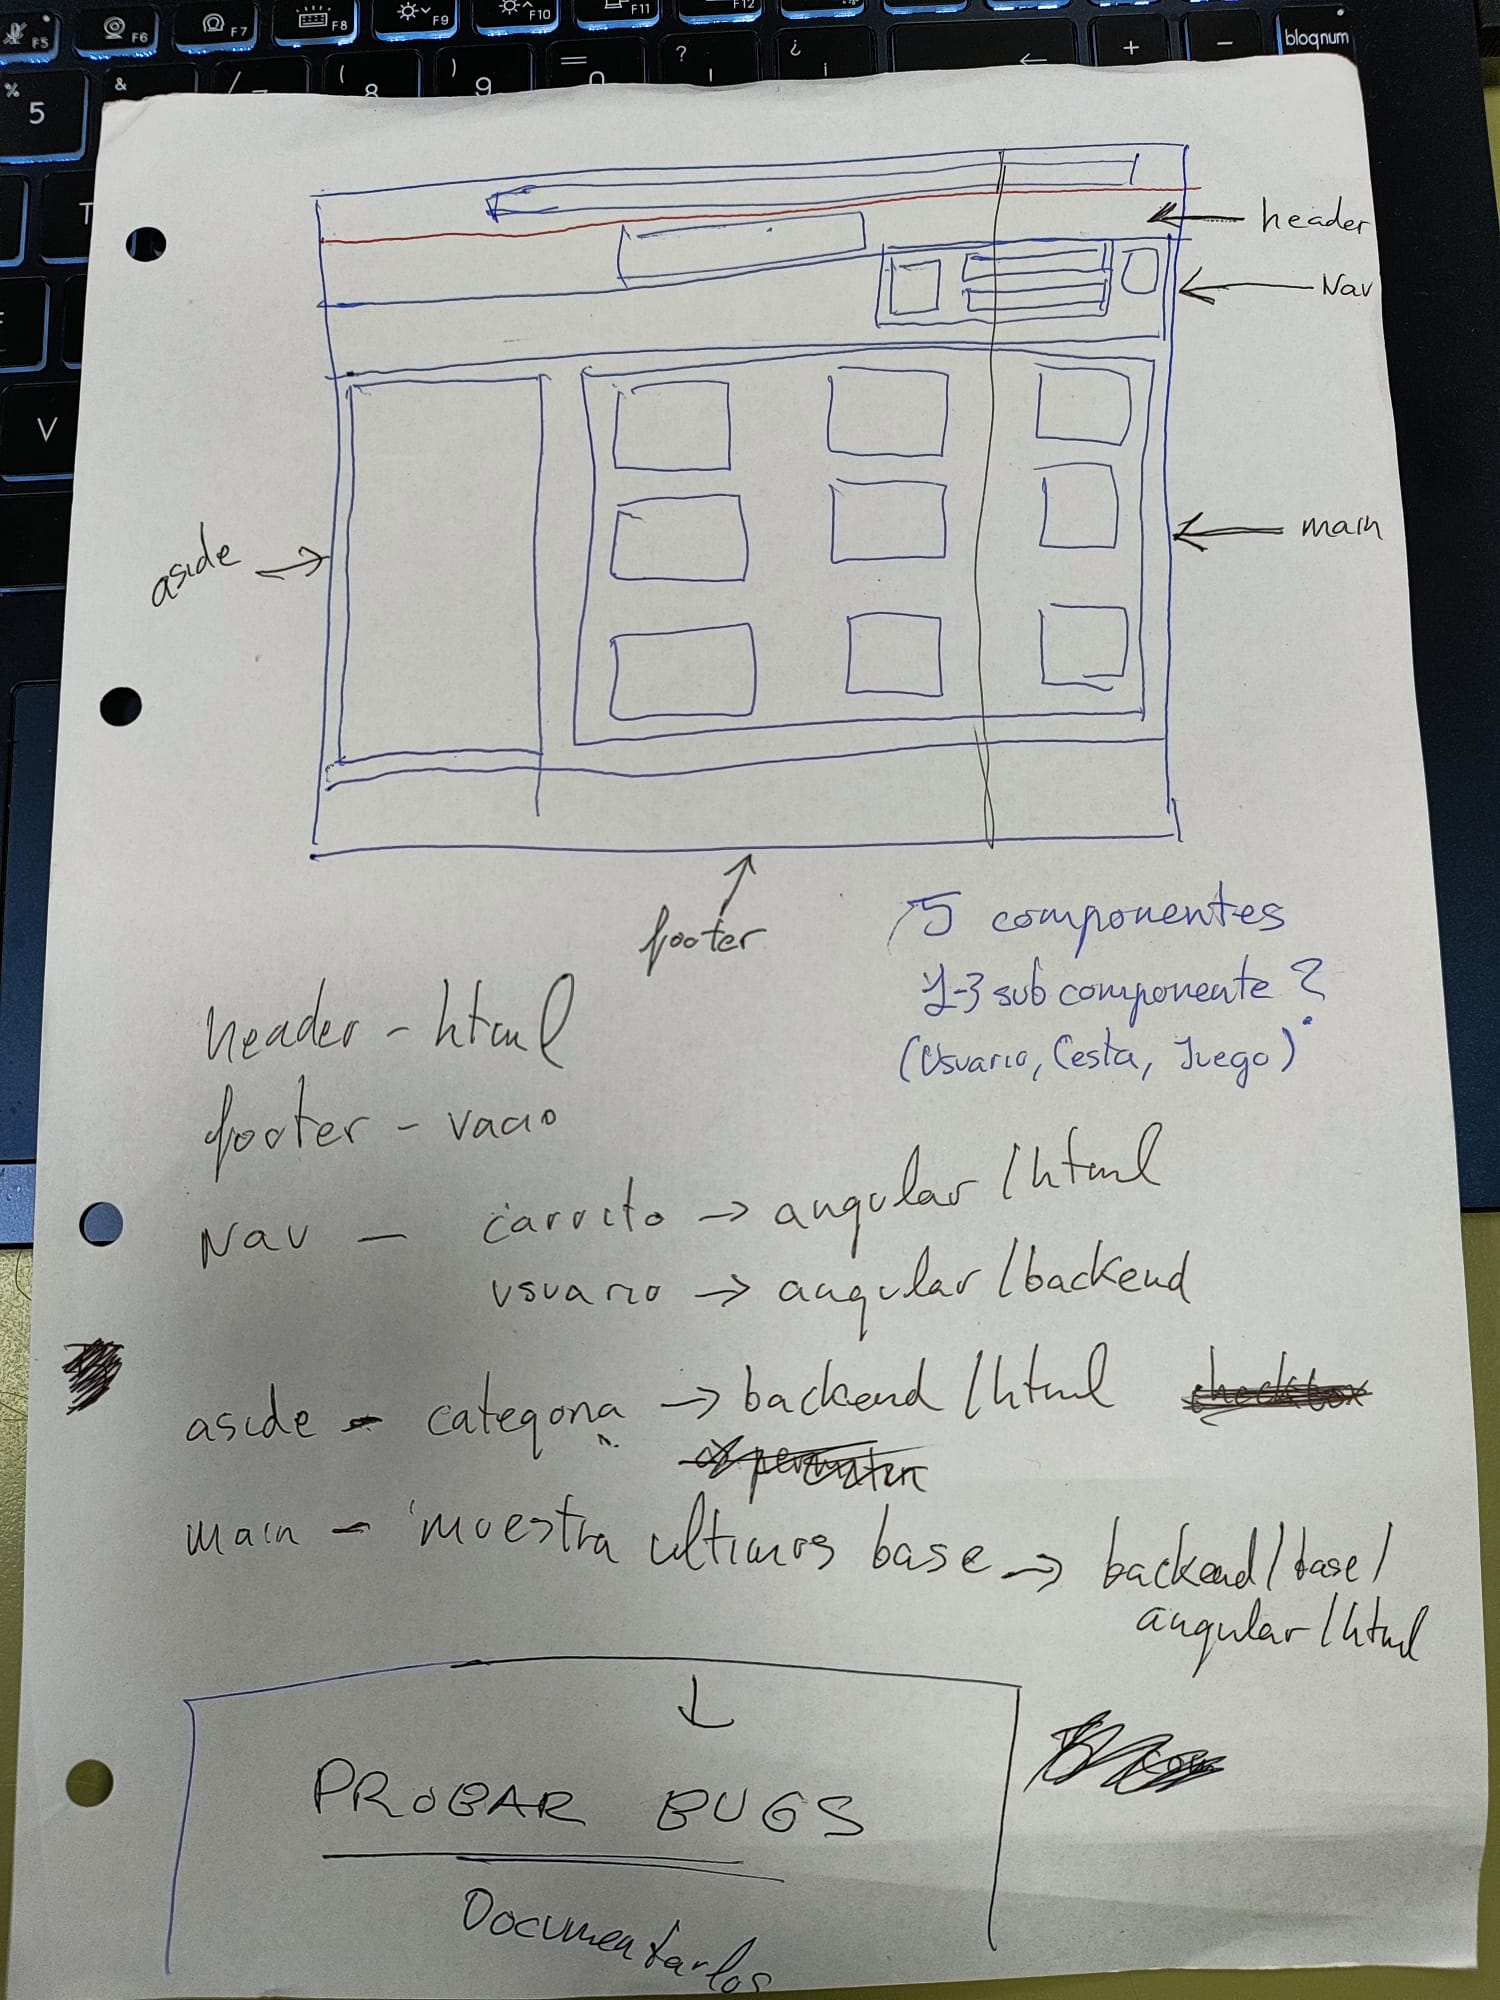 F5 F6 F7 F8 F9 F10 F11 F12
+ - bloqnum
% 5 & / ( 8 ) 9 = 0 ? ¿ ¡
T
V
header
Nav
aside
main
footer
5 componentes
1-3 sub componente?
(Usuario, Cesta, Juego)
header - html
footer - vacio
Nav - carrito → angular / html
usuario → angular / backend
aside - categoria → backend / html checkbox
main - muestra ultimos base → backend / base /
angular / html
↓
PROBAR BUGS
Documentarlos